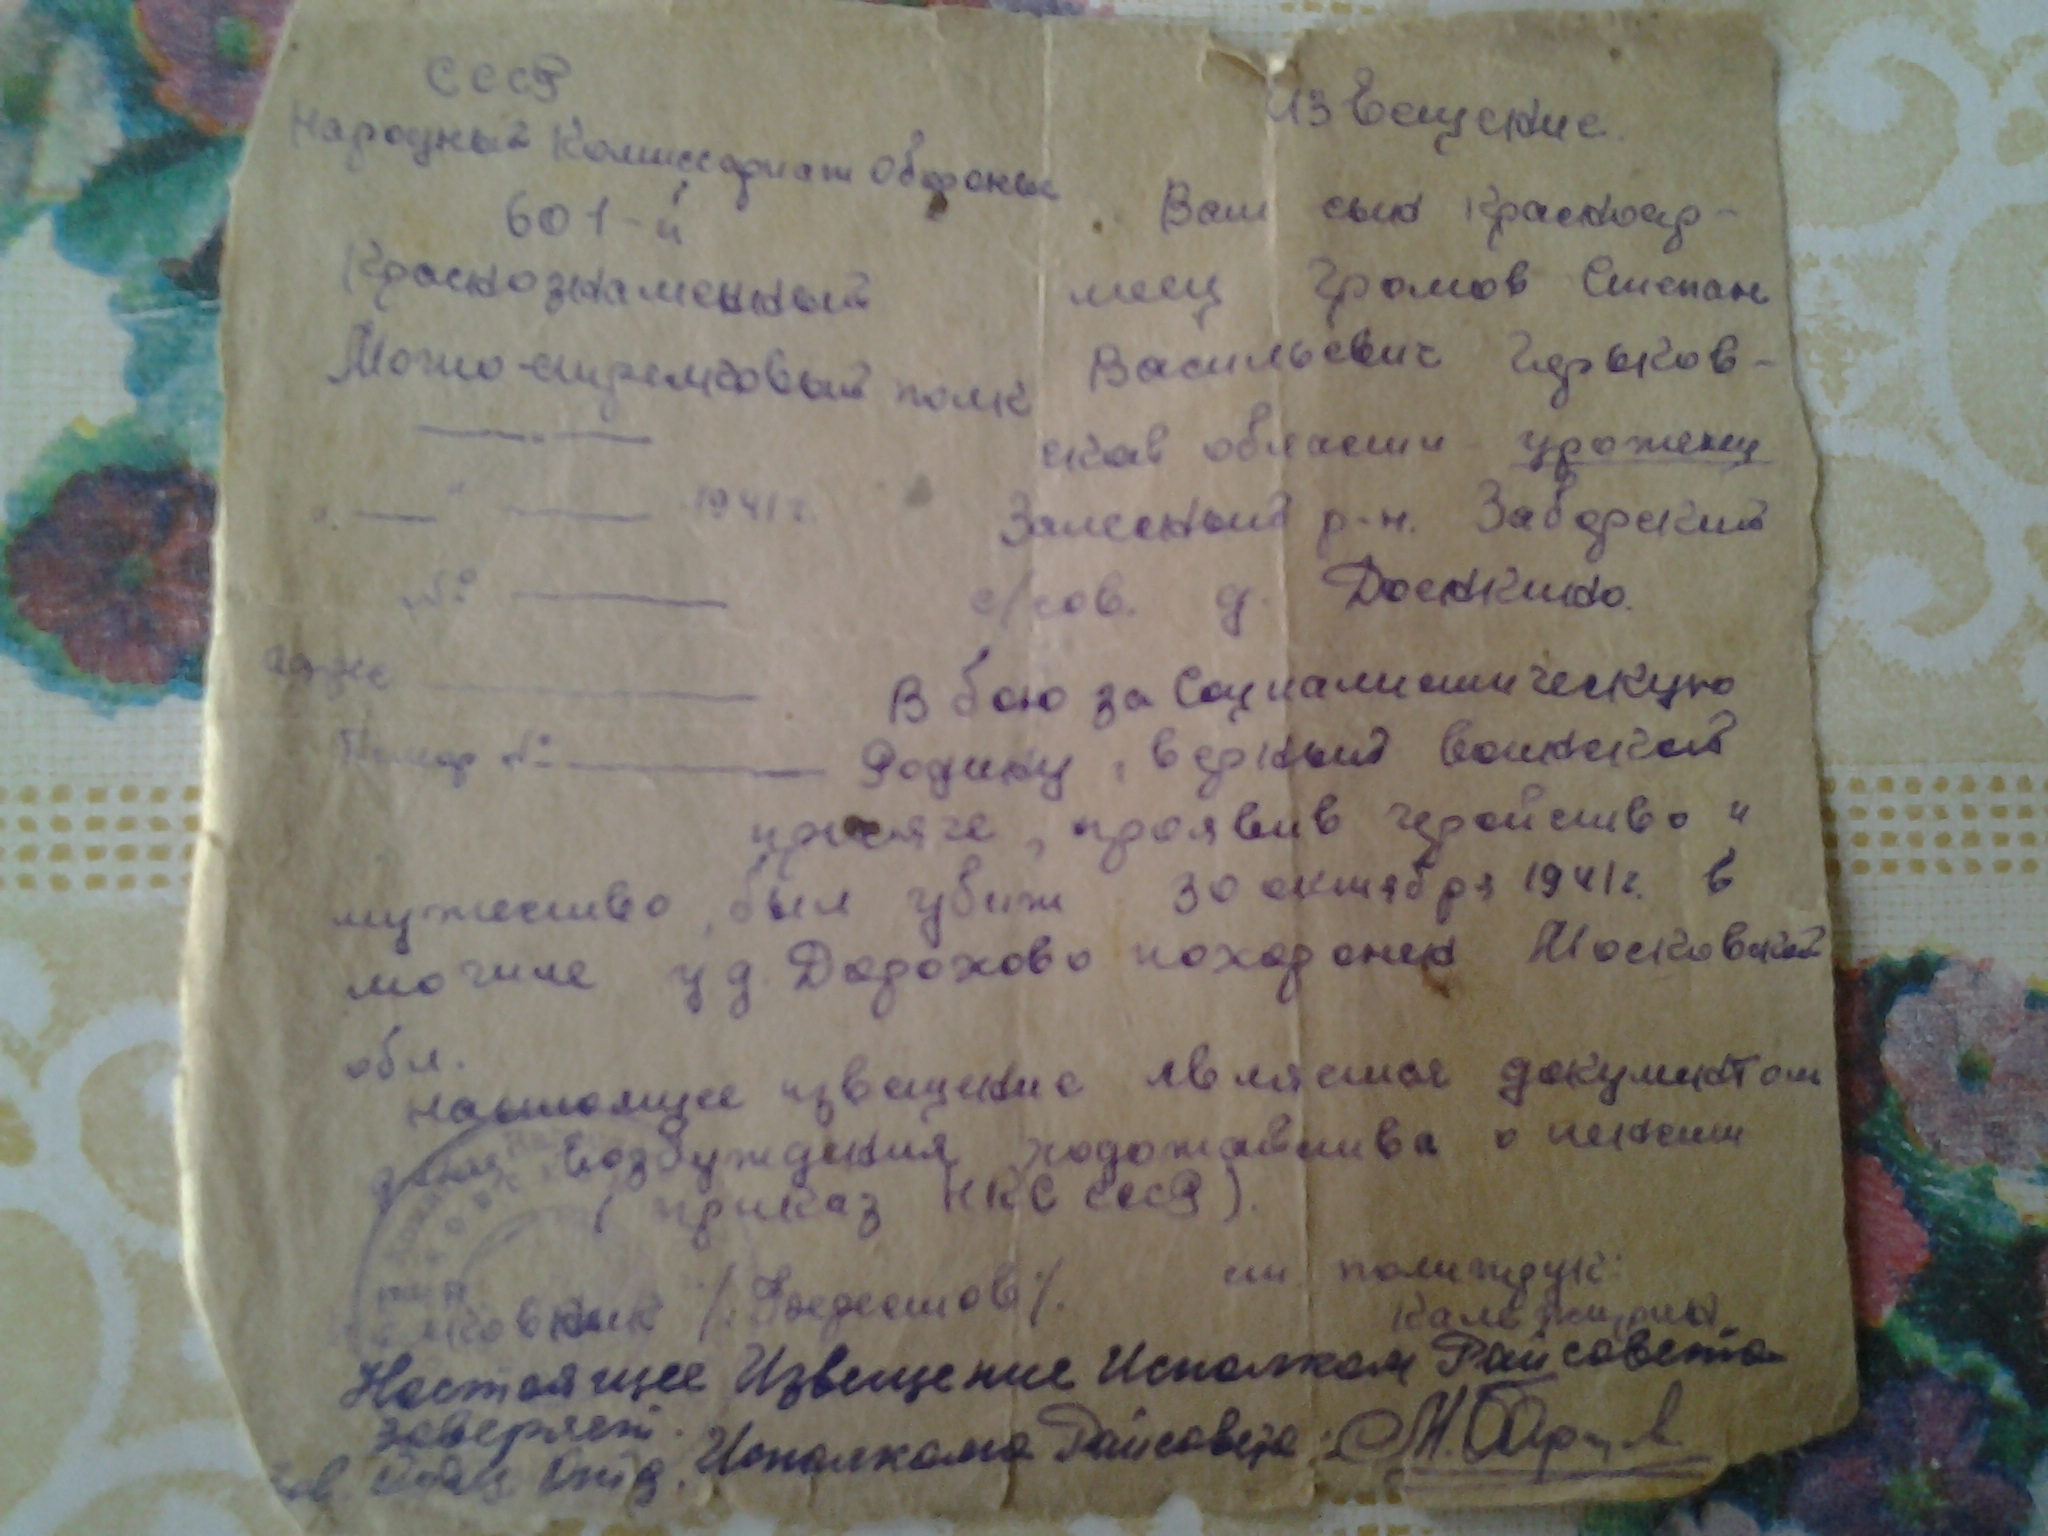 СССР
Народный Комиссариат Обороны
601-й
Краснознаменный
Мото-стрелковый полк
1941 г.
№
адрес
Извещение.
Ваш сын красноар-
меец Громов Степан
Васильевич Горьков-
ской области уроженец
р-н. Заборский
с/сов. д. Доскино.
В бою за Социалистическую
Родину, верный воинской
присяге, проявив геройство и
мужество, был убит 30 октября 1941 г. в
могиле у д. Дорохово похоронен Московской
обл.
настоящее извещение является документом
для возбуждения ходотайства о пенсии
(приказ НКС СССР).
ст. политрук:
Настоящее Извещение Исполком Райсовета
заверяет.
Зав. Отд. Исполкома Райсовета: